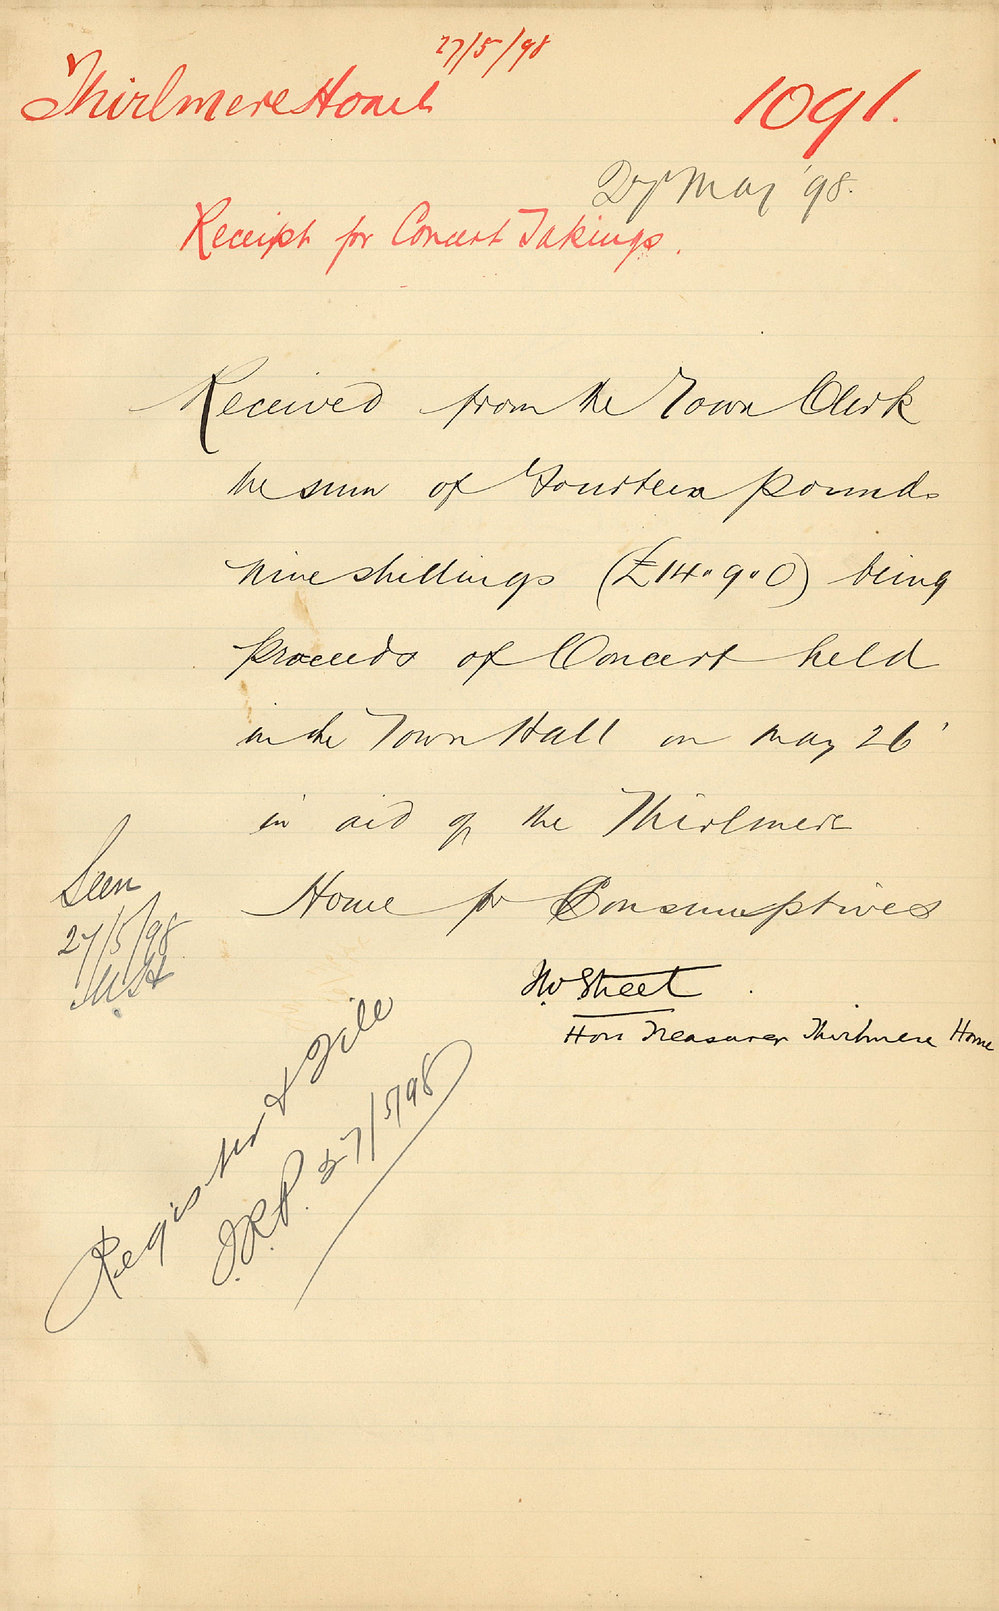 27/5/98
Thirlmere Home
1091.
27 May '98.
Receipt for Concert Takings.
Received from the Town Clerk
the sum of Fourteen pounds
nine shillings (£14.9.0) being
proceeds of Concert held
in the Town Hall on May 26'
in aid of the Thirlmere
Home for Consumptives
Seen
27/5/98
Street
Hon Treasurer Thirlmere Home
Register & File
J.R.P. 27/5/98